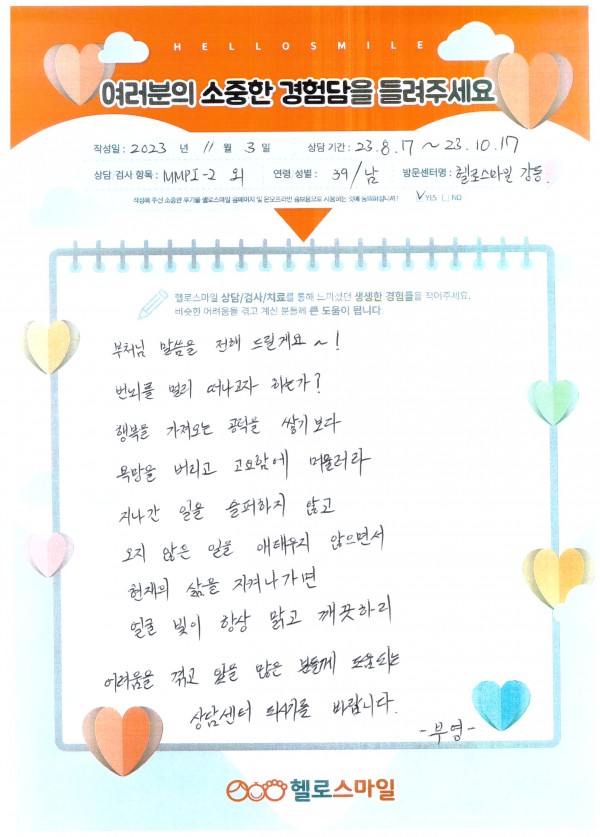 HELLOSMILE
여러분의 소중한 경험담을 들려주세요
작성일 : 2023 년 11 월 3 일 상담 기간 : 23.8.17 ~ 23.10.17
상담 검사 항목 : MMPI-2 외 연령 성별 : 39/남 방문센터명 : 헬로스마일 강동.
작성해 주신 소중한 후기를 헬로스마일 홈페이지 및 온오프라인 홍보용으로 사용하는 것에 동의하십니까? ✓YES □NO
헬로스마일 상담/검사/치료를 통해 느끼셨던 생생한 경험들을 적어주세요.
비슷한 어려움을 겪고 계신 분들께 큰 도움이 됩니다
부처님 말씀을 전해 드릴게요 ~!
번뇌를 멀리 떠나고자 하는가?
행복을 가져오는 공덕을 쌓기보다
욕망을 버리고 고요함에 머물러라
지나간 일을 슬퍼하지 않고
오지 않은 일을 애태우지 않으면서
현재의 삶을 지켜나가면
얼굴 빛이 항상 맑고 깨끗하리
어려움을 겪고 있을 많은 분들께 도움되는
상담센터 되시기를 바랍니다.
-부영-
헬로스마일